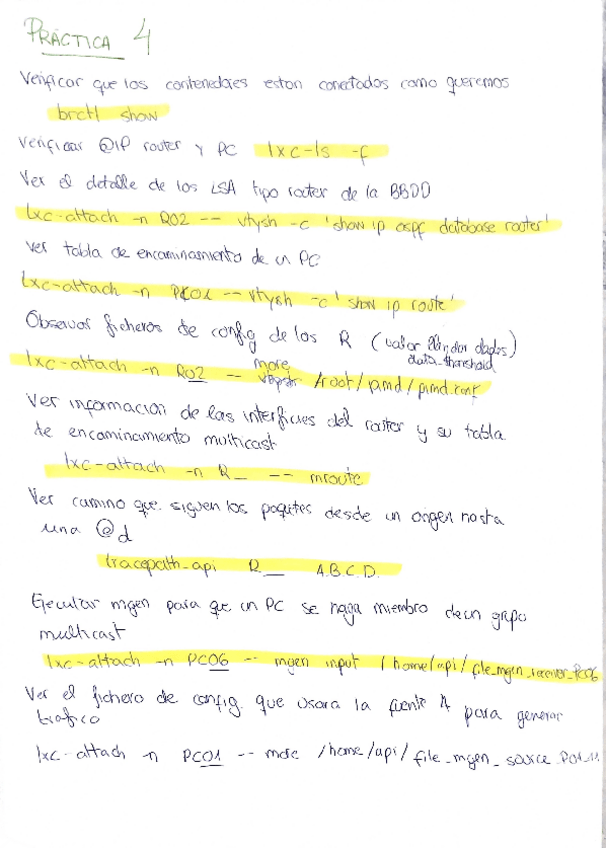 PRÁCTICA 4
Verificar que los contenedores estan conectados como queremos
brctl show
Verificar @IP router y PC lxc-ls -f
Ver el detalle de los LSA tipo router de la BBDD
lxc-attach -n R02 -- vtysh -c 'show ip ospf database router'
Ver tabla de encaminamiento de un PC
lxc-attach -n PC01 -- vtysh -c 'show ip route'
Observar ficheros de config de los R (valor dados)
data-threshold
more
lxc-attach -n R02 -- /root/pimd/pimd.conf
Ver información de las interficies del router y su tabla
de encaminamiento multicast
lxc-attach -n R_ -- mroute
Ver camino que siguen los paquetes desde un origen hasta
una @d
tracepath-api R_ A.B.C.D.
Ejecutar mgen para que un PC se haga miembro de un grupo
multicast
lxc-attach -n PC06 -- mgen input /home/api/file_mgen_receiver_PC06
Ver el fichero de config. que usara la fuente 4 para generar
trafico
lxc-attach -n PC01 -- more /home/api/file_mgen_source_P01_11